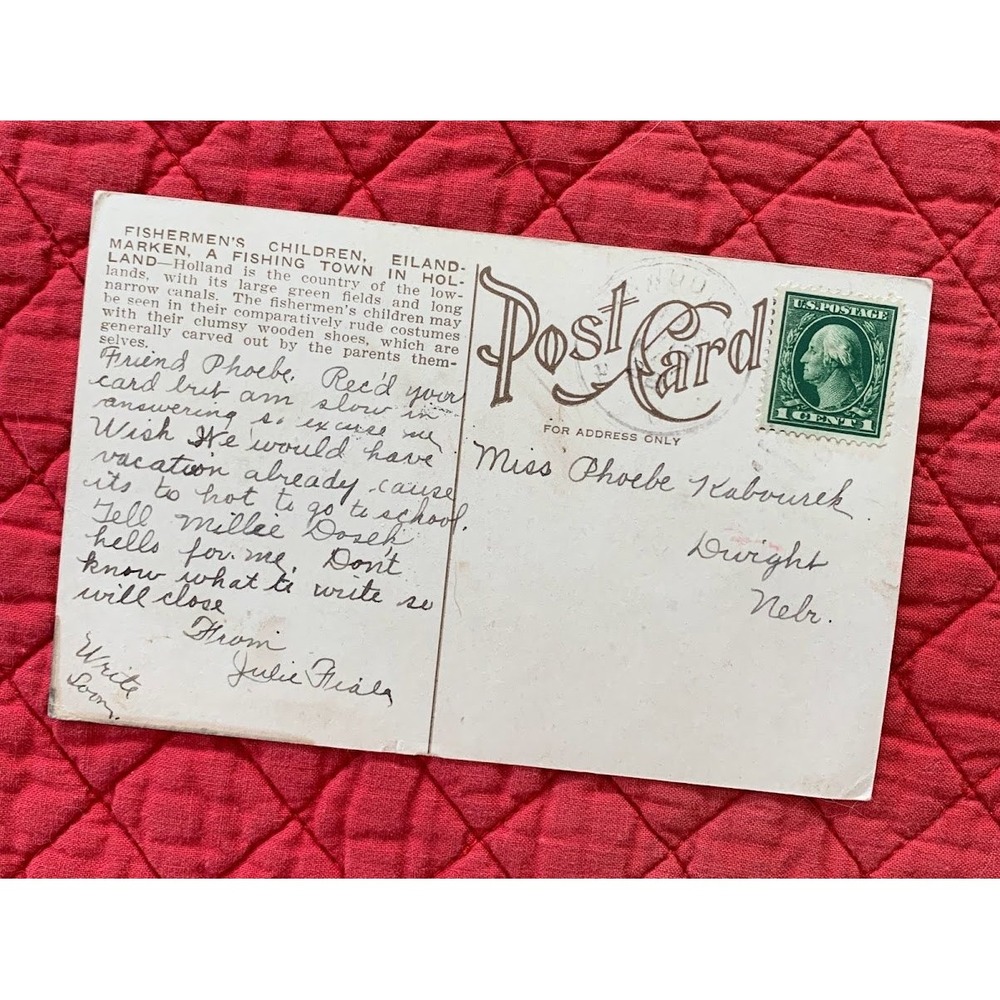 FISHERMEN'S CHILDREN, EILAND-
MARKEN, A FISHING TOWN IN HOL-
LAND—Holland is the country of the low-
lands, with its large green fields and long
narrow canals. The fishermen's children may
be seen in their comparatively rude costumes
with their clumsy wooden shoes, which are
generally carved out by the parents them-
selves.
Friend Phoebe. Rec'd your
card but am slow in
answering so excuse me
Wish We would have
vacation already cause
its to hot to go to school.
Tell Millie Dosek
hells for me. Don't
know what to write so
will close
From
Julie Fiala
Write
Soon.
Post Card
FOR ADDRESS ONLY
U.S. POSTAGE
1 CENT 1
Miss Phoebe Kabourek
Dwight
Nebr.